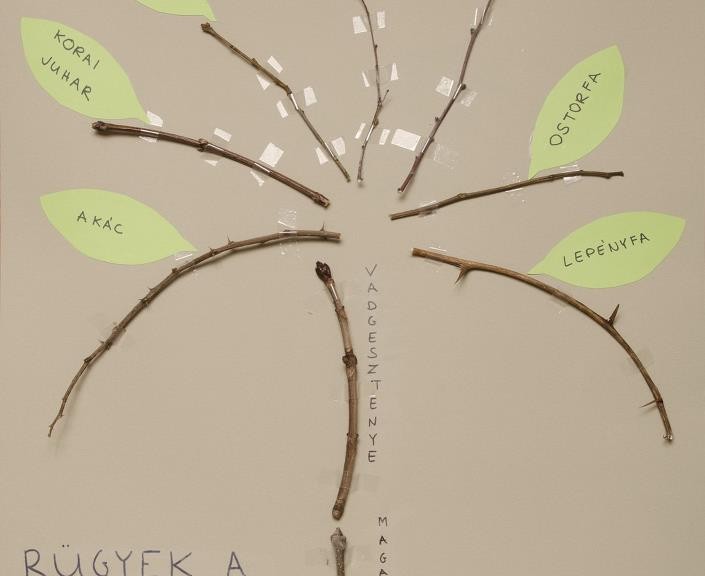 KORAI
JUHAR
OSTORFA
AKÁC
LEPÉNYFA
VADGESZTENYE
MAGA
RÜGYEK A